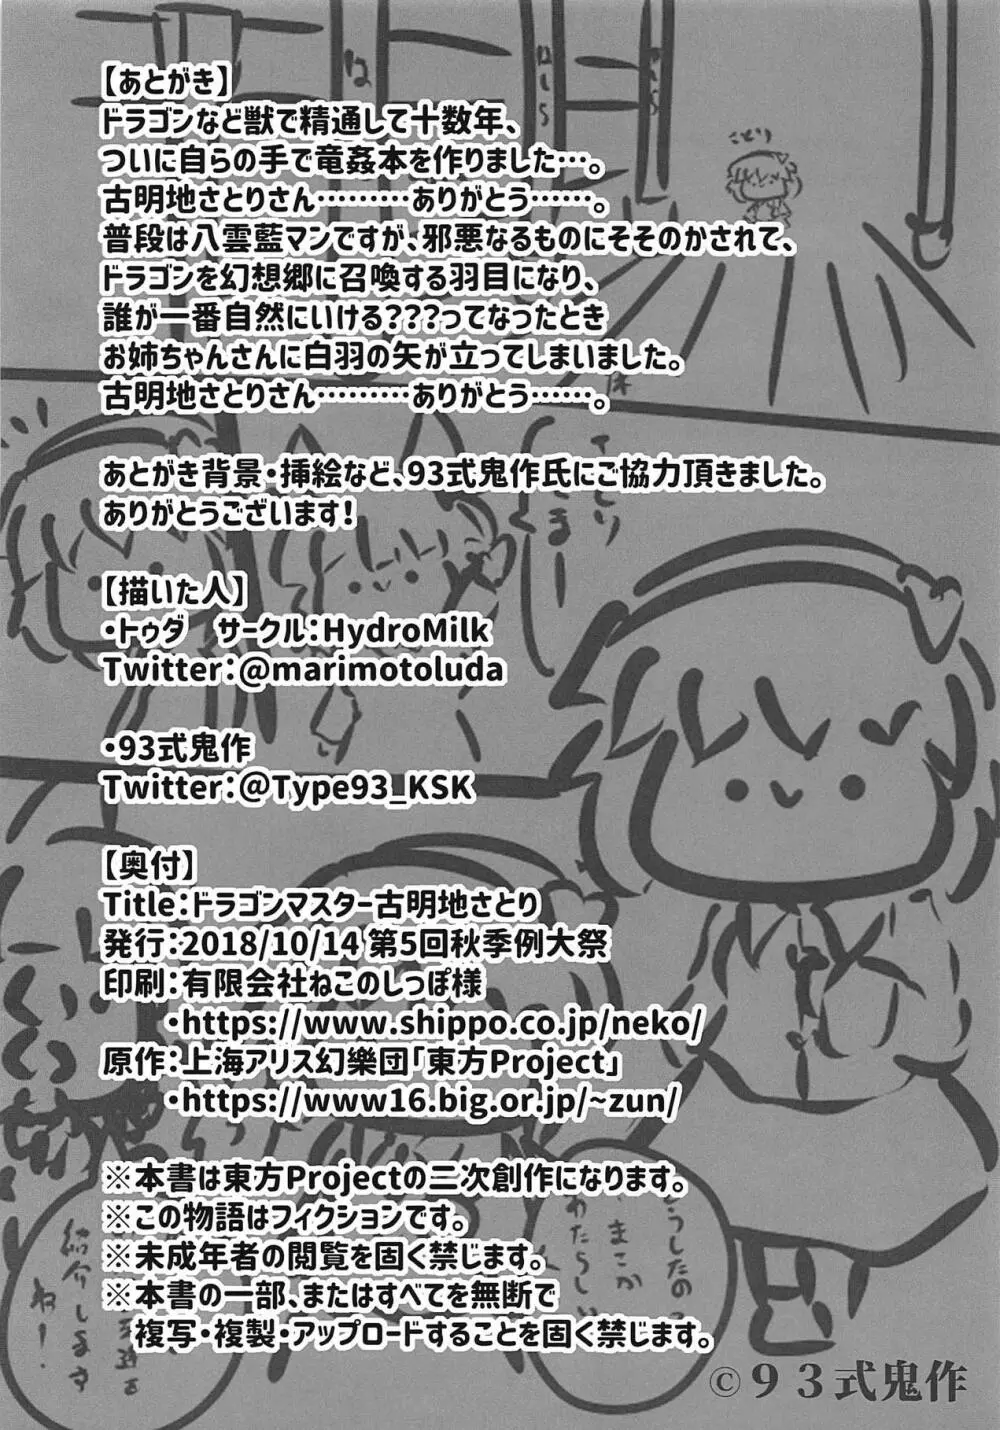 【あとがき】
ドラゴンなど獣で精通して十数年、
ついに自らの手で竜姦本を作りました…。
古明地さとりさん………ありがとう……。
普段は八雲藍マンですが、邪悪なるものにそそのかされて、
ドラゴンを幻想郷に召喚する羽目になり、
誰が一番自然にいける???ってなったとき
お姉ちゃんさんに白羽の矢が立ってしまいました。
古明地さとりさん………ありがとう……。
あとがき背景・挿絵など、93式鬼作氏にご協力頂きました。
ありがとうございます!
【描いた人】
・トゥダ　サークル:HydroMilk
Twitter:@marimotoluda
・93式鬼作
Twitter:@Type93_KSK
【奥付】
Title:ドラゴンマスター古明地さとり
発行:2018/10/14 第5回秋季例大祭
印刷:有限会社ねこのしっぽ様
・https://www.shippo.co.jp/neko/
原作:上海アリス幻樂団「東方Project」
・https://www16.big.or.jp/~zun/
※本書は東方Projectの二次創作になります。
※この物語はフィクションです。
※未成年者の閲覧を固く禁じます。
※本書の一部、またはすべてを無断で
複写・複製・アップロードすることを固く禁じます。
はしら
ことり
床
さとり
さまー
うしたの
まさか
わたらしい
紹介します
ね!
©93式鬼作